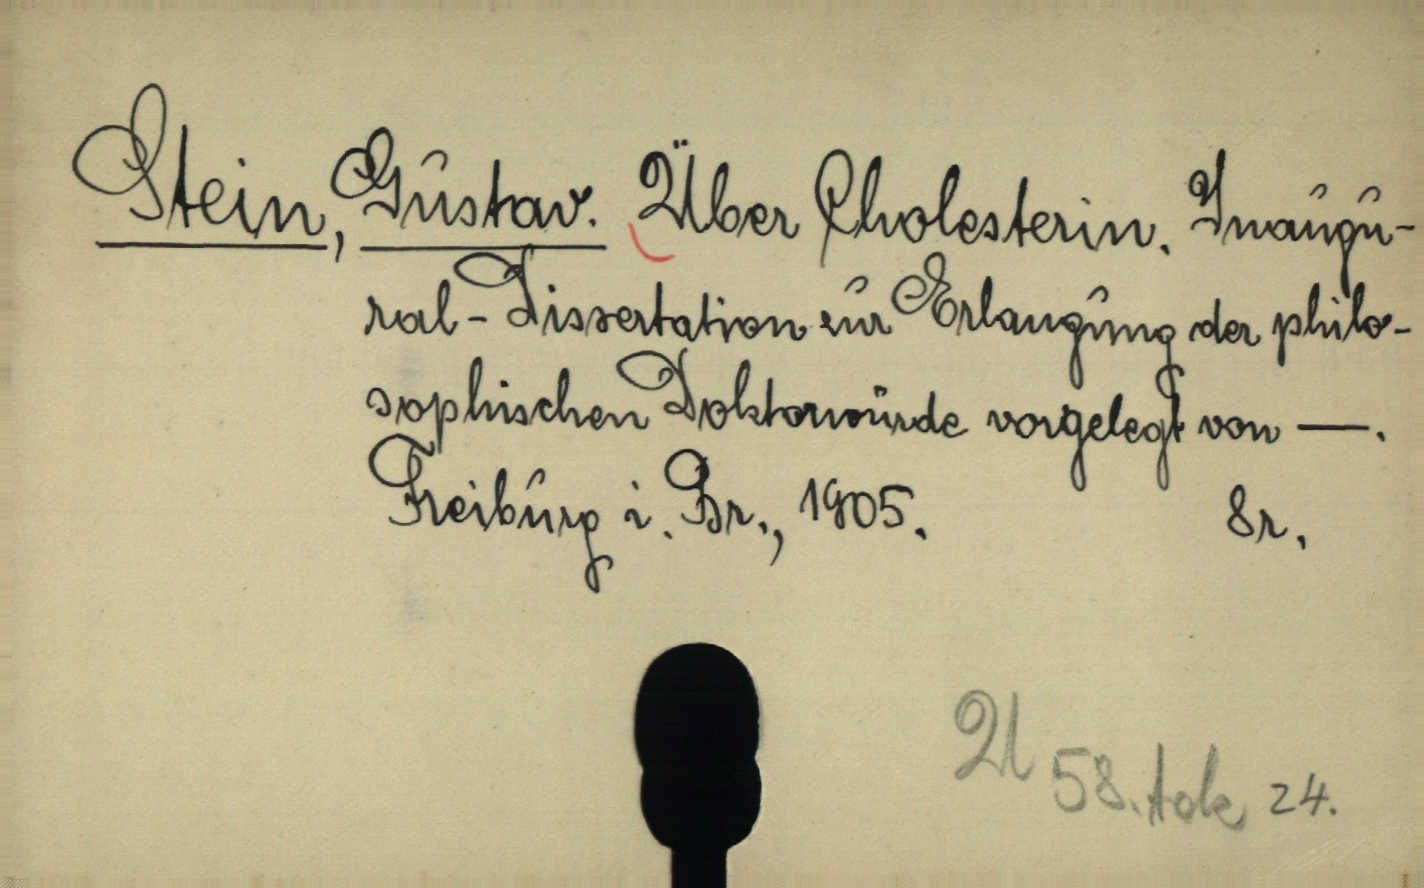 Stein, Gustav. Über Cholesterin. Inaugu-
ral-Dissertation zur Erlangung der philo-
sophischen Doktorwürde vorgelegt von —.
Freiburg i. Br., 1905. 8r.
58. tok 24.